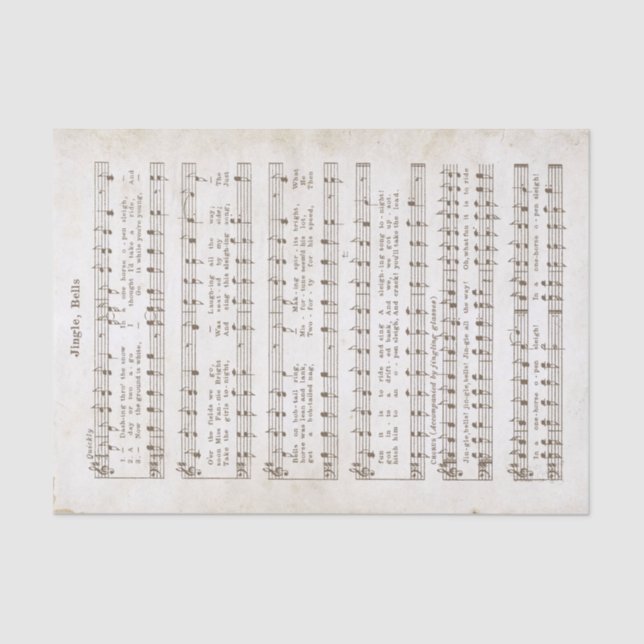 Jingle, Bells
Quickly
1. — Dash-ing thro' the snow In a one horse o - pen sleigh, —
2. A day or two a - go I thought I'd take a ride, And
3. — Now the ground is white, — Go it while you're young, —
O'er the fields we go, — Laugh-ing all the way; —
soon Miss Fan-nie Bright Was seat - ed by my side; The
Take the girls to-night, And sing this sleigh-ing song; Just
Bells on bob-tail ring, — Mak - ing spir - its bright, What
horse was lean and lank, Mis - for - tune seem'd his lot, He
get a bob-tailed nag, Two - for - ty for his speed, Then
fun it is to ride and sing A sleigh-ing song to - night!
got in - to a drift - ed bank, And we, we got up - sot.
hitch him to an o - pen sleigh, And crack! you'll take the lead.
CHORUS (Accompanied by jingling glasses)
Jin-gle, bells! jin-gle, bells! Jin-gle all the way! Oh, what fun it is to ride
In a one-horse o - pen sleigh! In a one-horse o - pen sleigh!